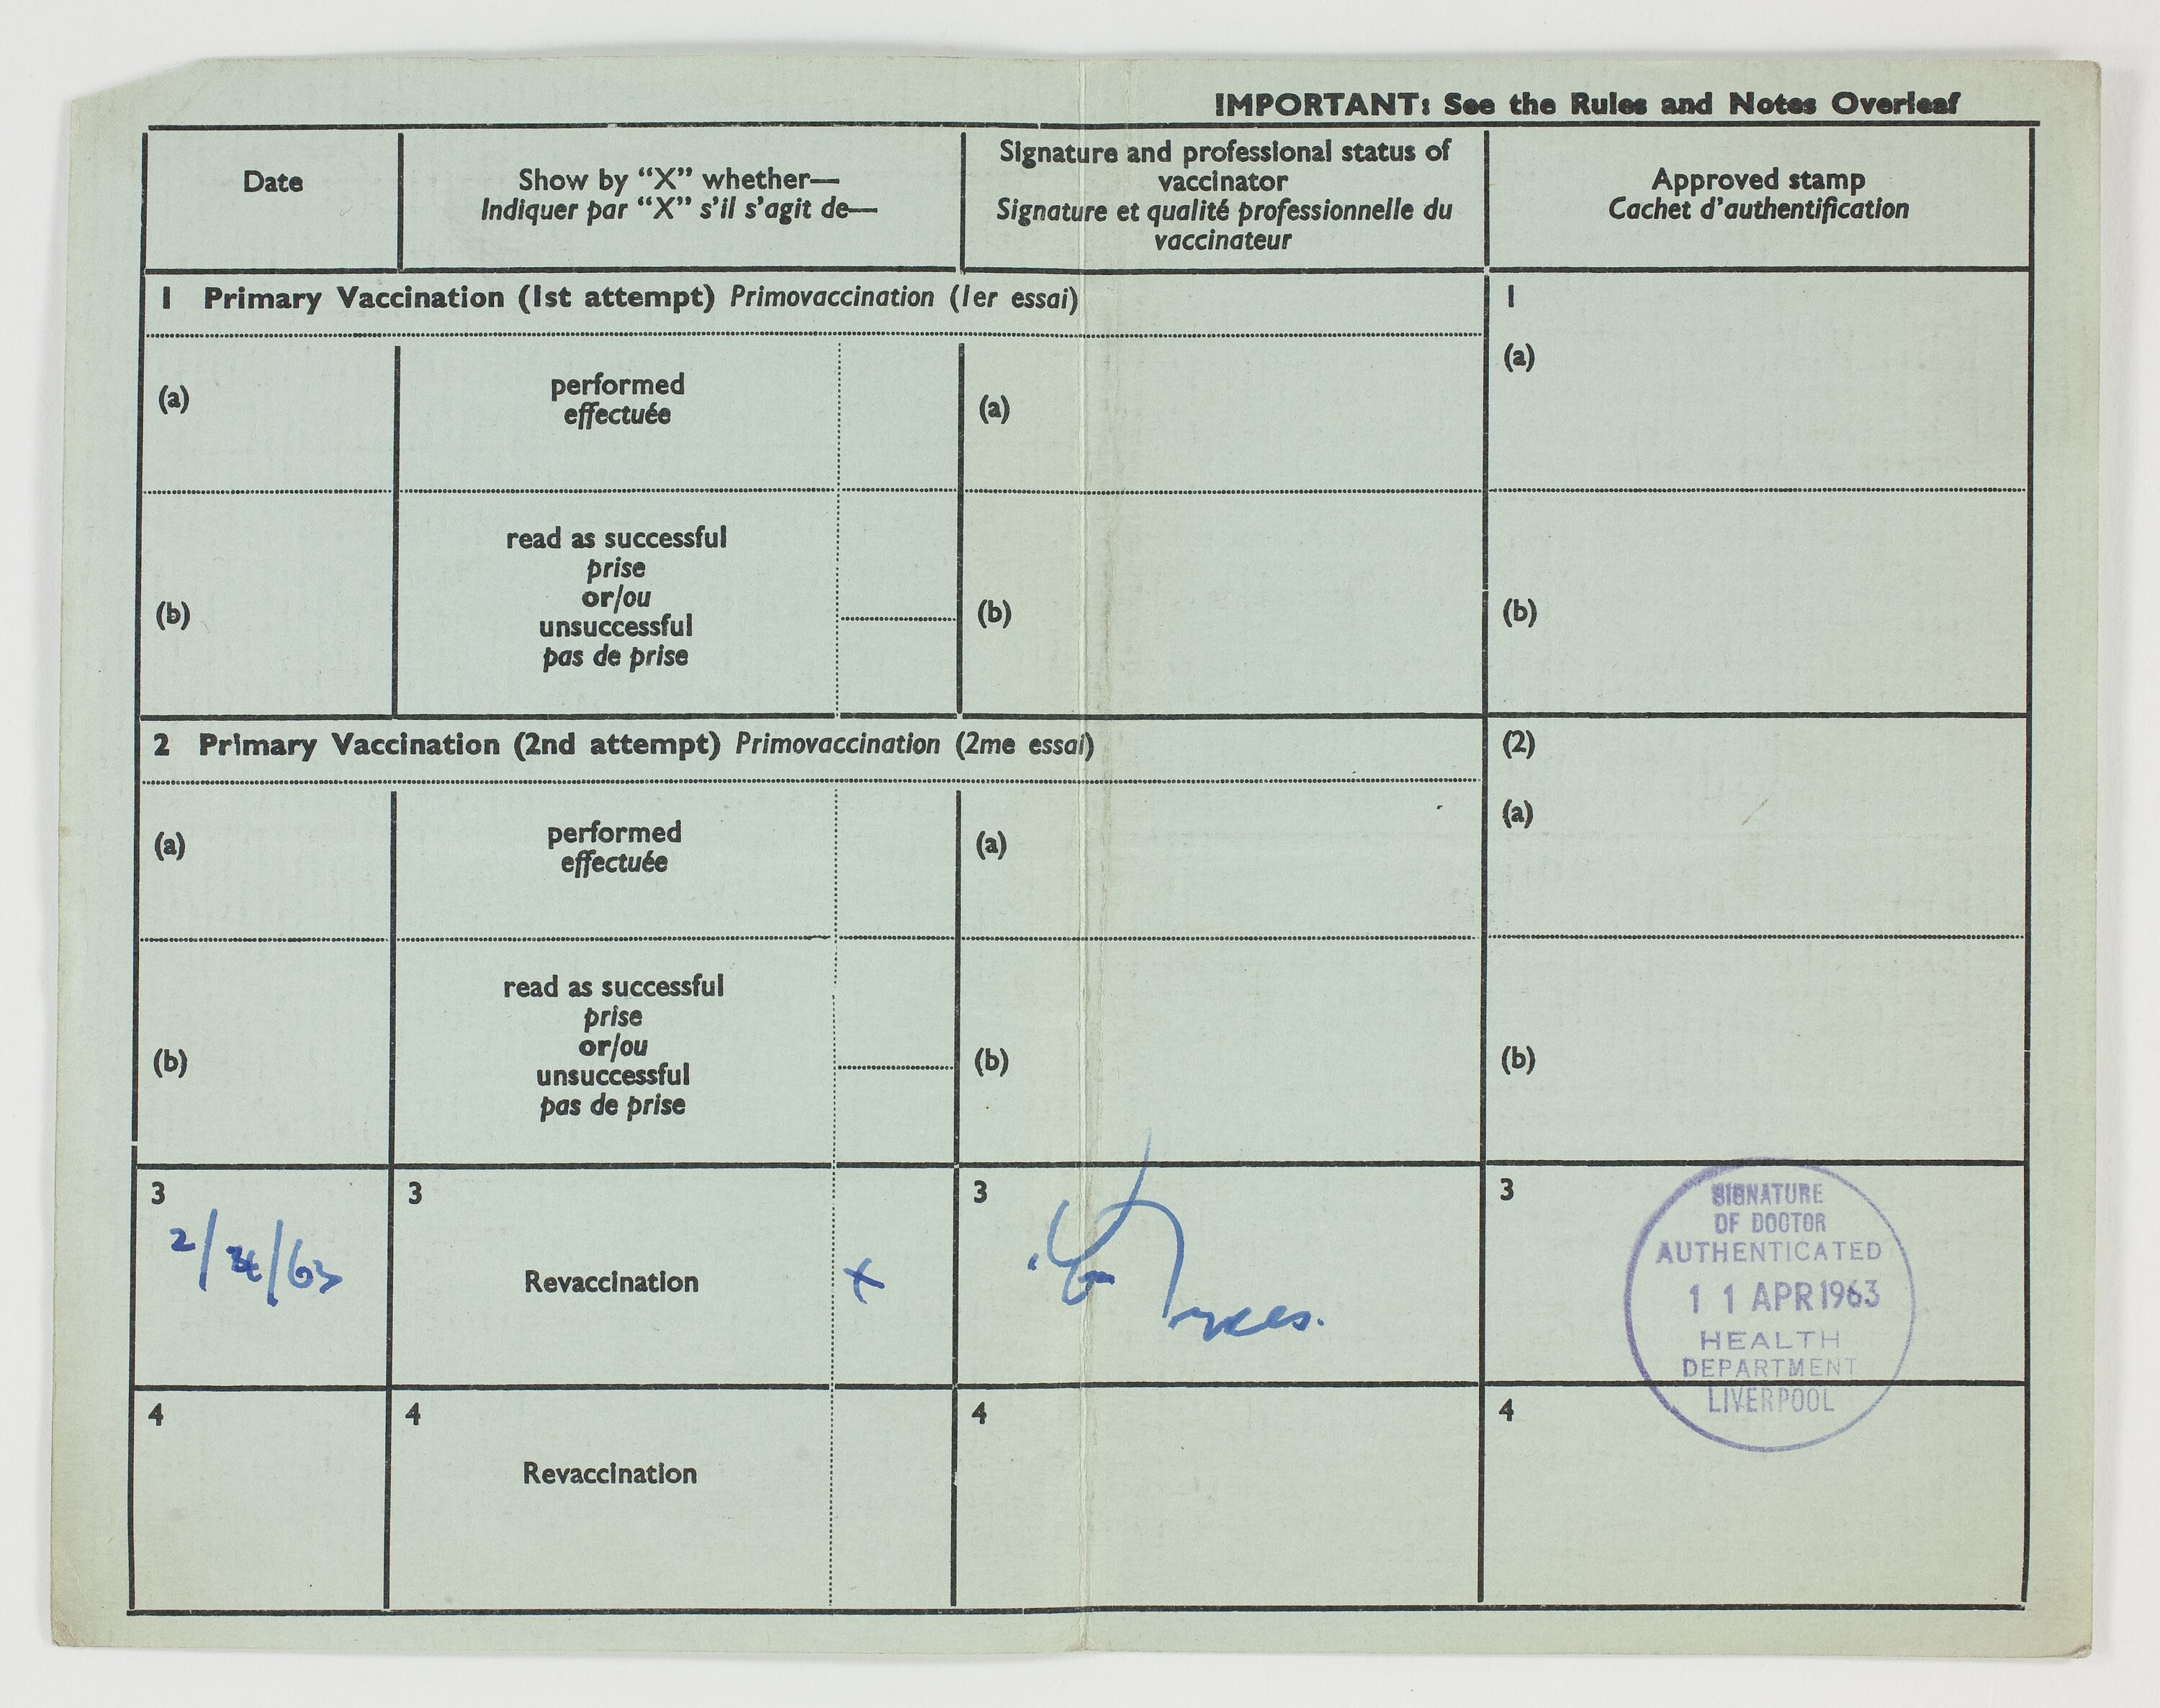 IMPORTANT: See the Rules and Notes Overleaf
Date
Show by “X” whether—
Indiquer par “X” s’il s’agit de—
Signature and professional status of
vaccinator
Signature et qualité professionnelle du
vaccinateur
Approved stamp
Cachet d’authentification
1 Primary Vaccination (1st attempt) Primovaccination (1er essai)
1
(a)
performed
effectuée
(a)
(a)
(b)
read as successful
prise
or/ou
unsuccessful
pas de prise
(b)
(b)
2 Primary Vaccination (2nd attempt) Primovaccination (2me essai)
(2)
(a)
performed
effectuée
(a)
(a)
(b)
read as successful
prise
or/ou
unsuccessful
pas de prise
(b)
(b)
3
2/4/63
3
Revaccination
x
3
3
SIGNATURE
OF DOCTOR
AUTHENTICATED
11 APR 1963
HEALTH
DEPARTMENT
LIVERPOOL
4
4
Revaccination
4
4